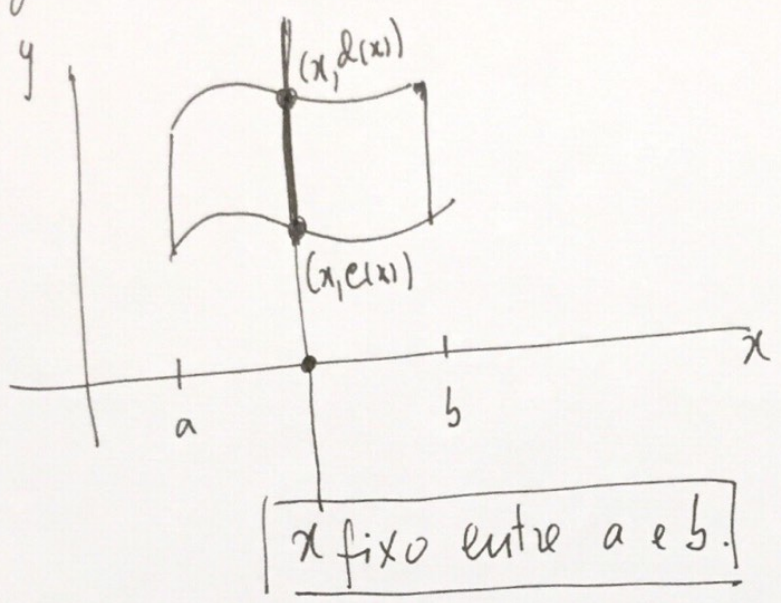 y
(x, d(x))
(x, c(x))
x
a
b
x fixo entre a e b.